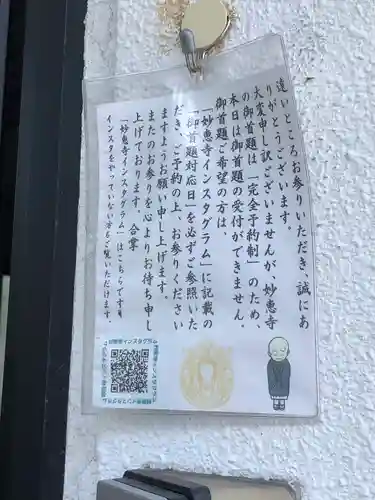 遠いところお参りいただき、誠にあ
りがとうございます。
大変申し訳ございませんが、妙恵寺
の御首題は「完全予約制」のため、
本日は御首題の受付ができません。
御首題ご希望の方は、
「妙恵寺インスタグラム」に記載の
「御首題対応日」を必ずご参照いた
だき、ご予約の上、お参りください
ますようお願い申し上げます。
またのお参りを心よりお待ち申し
上げております。合掌
「妙恵寺インスタグラム」はこちらです
インスタをやっていない方もご覧いただけます。